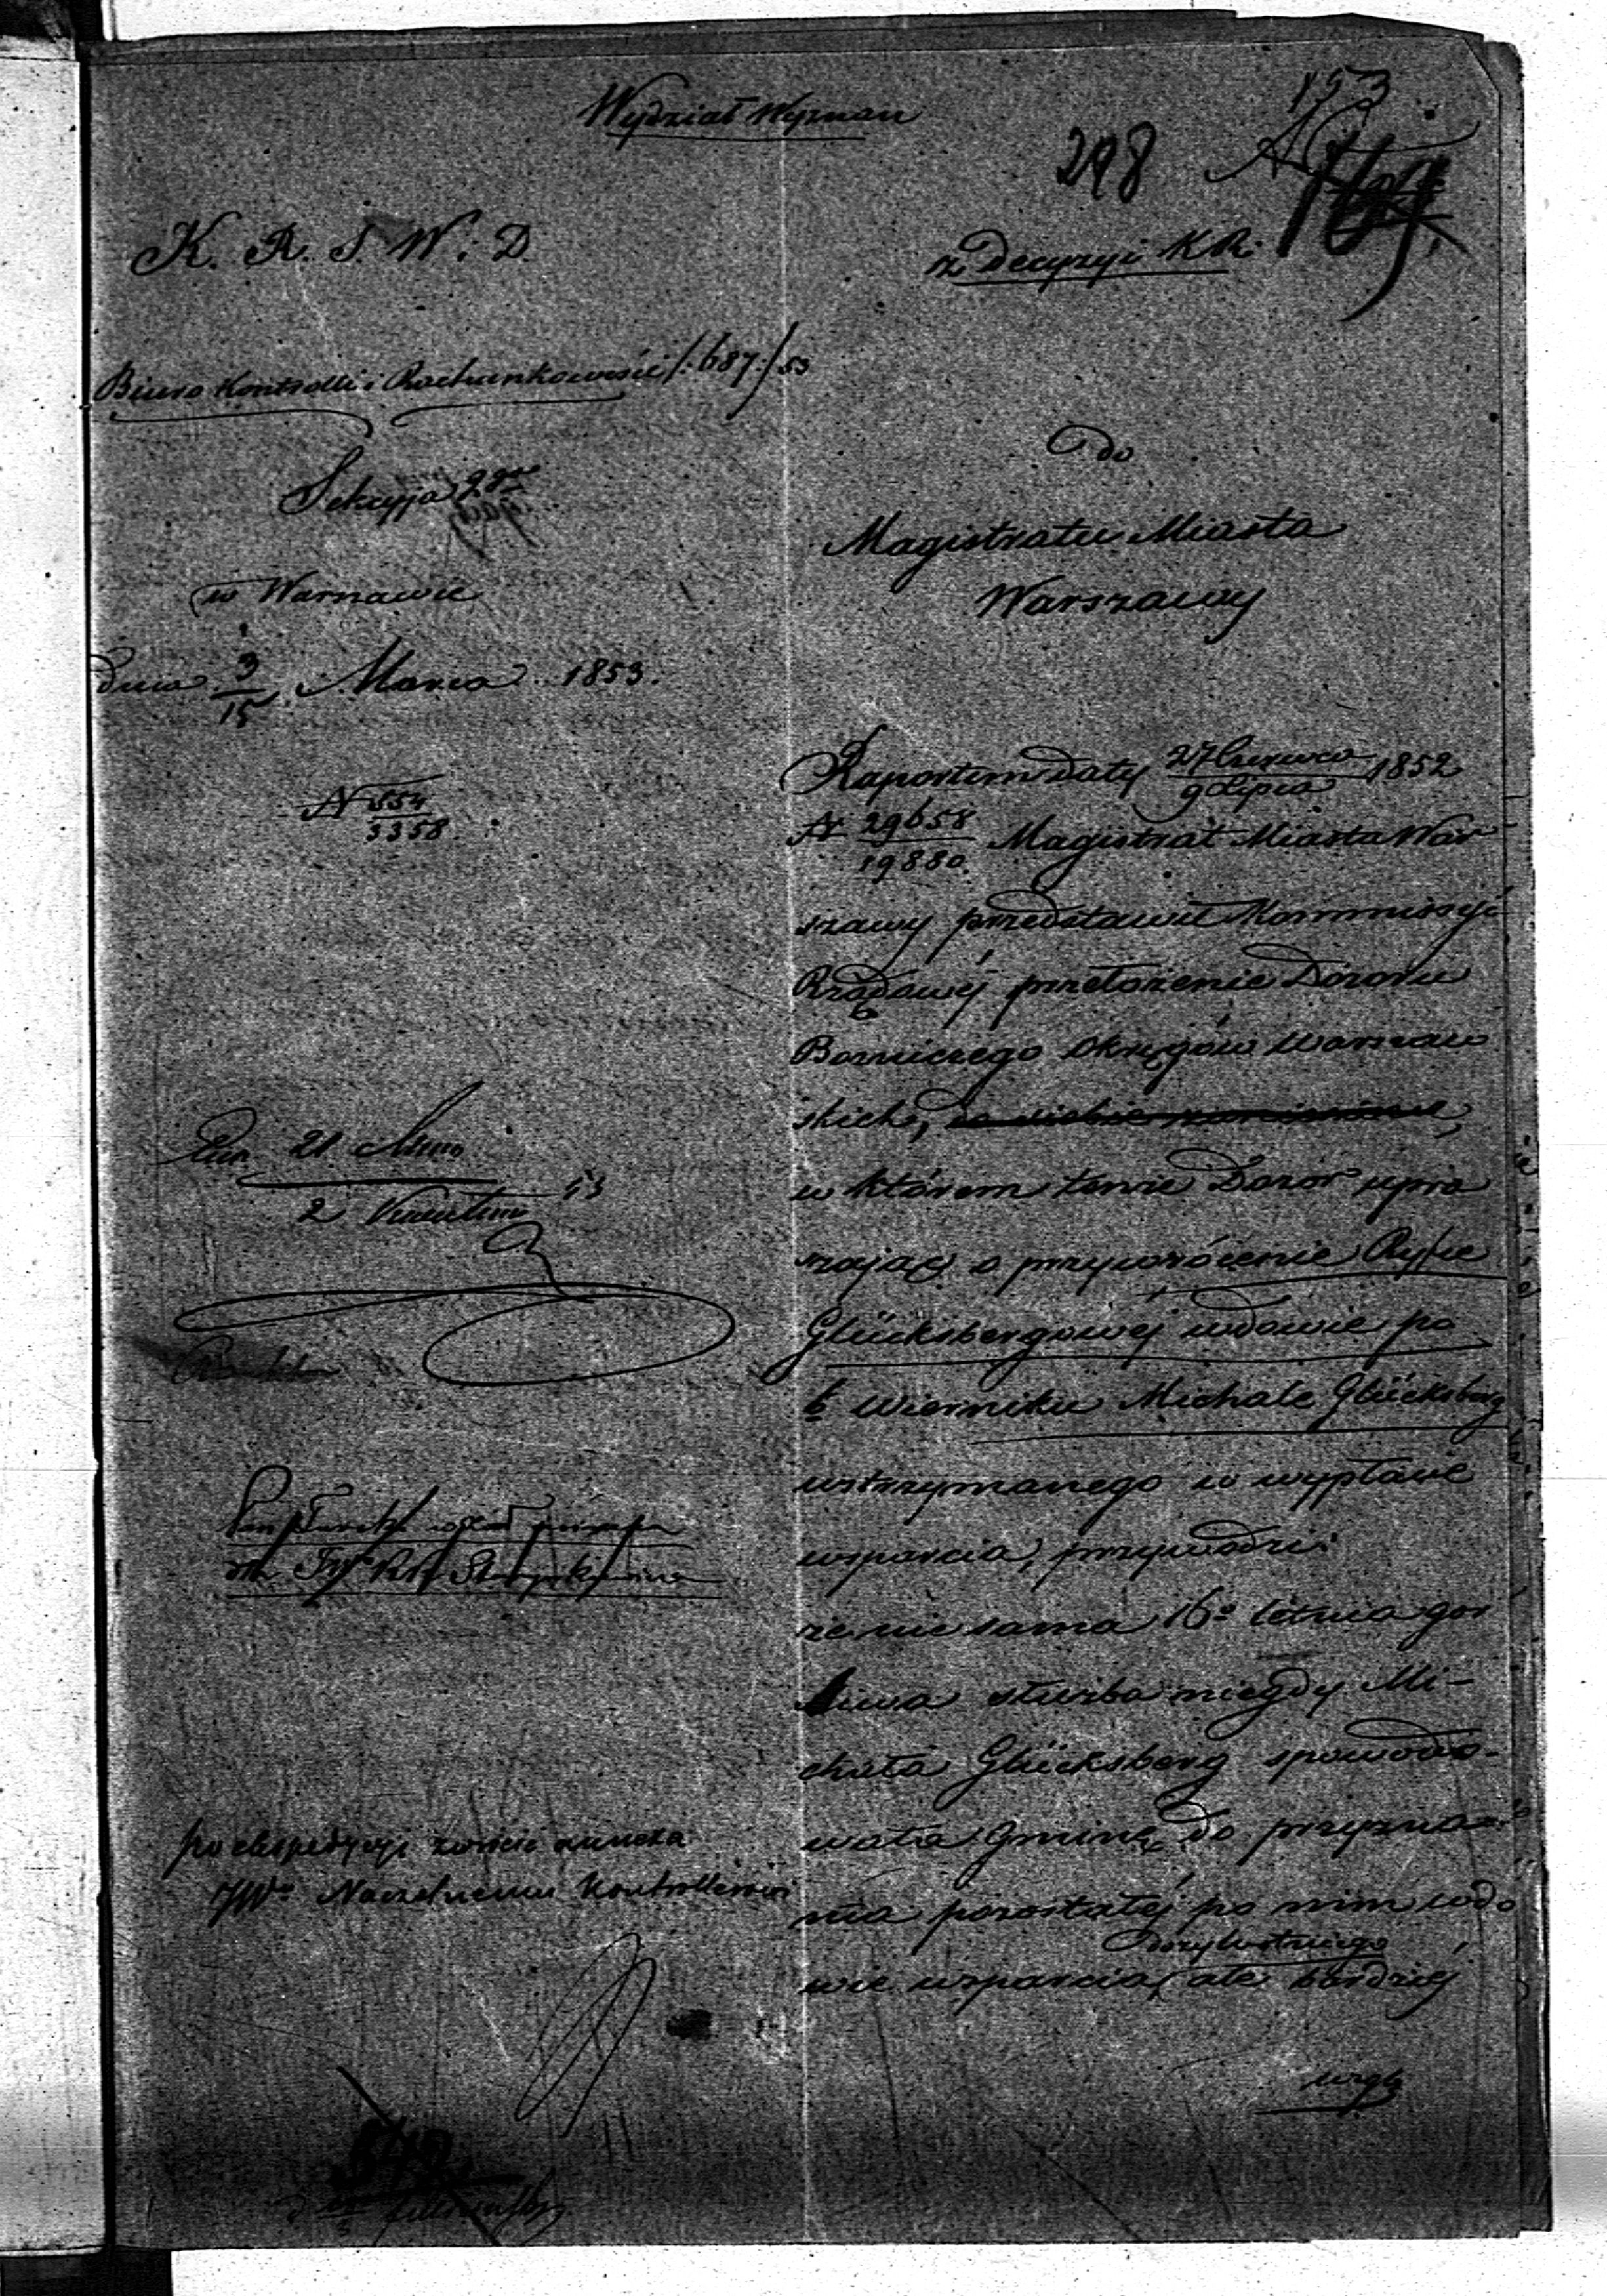 Wydział Wyznań
153
298
169
K. R. S. W. D.
z Decyzyi K R.
Biuro Kontrolli i Rachunkowości /:687:/53
Sekcyja 2ga
w Warszawie
dnia 3/15 Marca 1853.
N 554/3358
Do
Magistratu Miasta
Warszawy
Raportem daty 27 Czerwca/9 Lipca 1852
N 29658/19880. Magistrat Miasta War
szawy przedstawił Kommissyi
Rządowéj przełożenie Dozoru
Bożniczego Okręgów Warszaw
skich,
w którem tenże Dozór upra
szając o przywrócenie Ryfce
Glücksbergowéj wdowie po
b. Wierniku Michale Glücksberg
wstrzymanego w wypłacie
wsparcia, przywodzi:
że nie sama 16o letnia gor
liwa służba niegdy Mi-
chała Glücksberg spowodo-
wała Gminę do przyzna-
nia pozostałéj po nim wdo
wie wsparcia dożywotniego ale bardziéj
wzgl
21
2 Kwietnia 53
po expedycyi zwrócić
JWo Naczelnemu Kontrollerowi